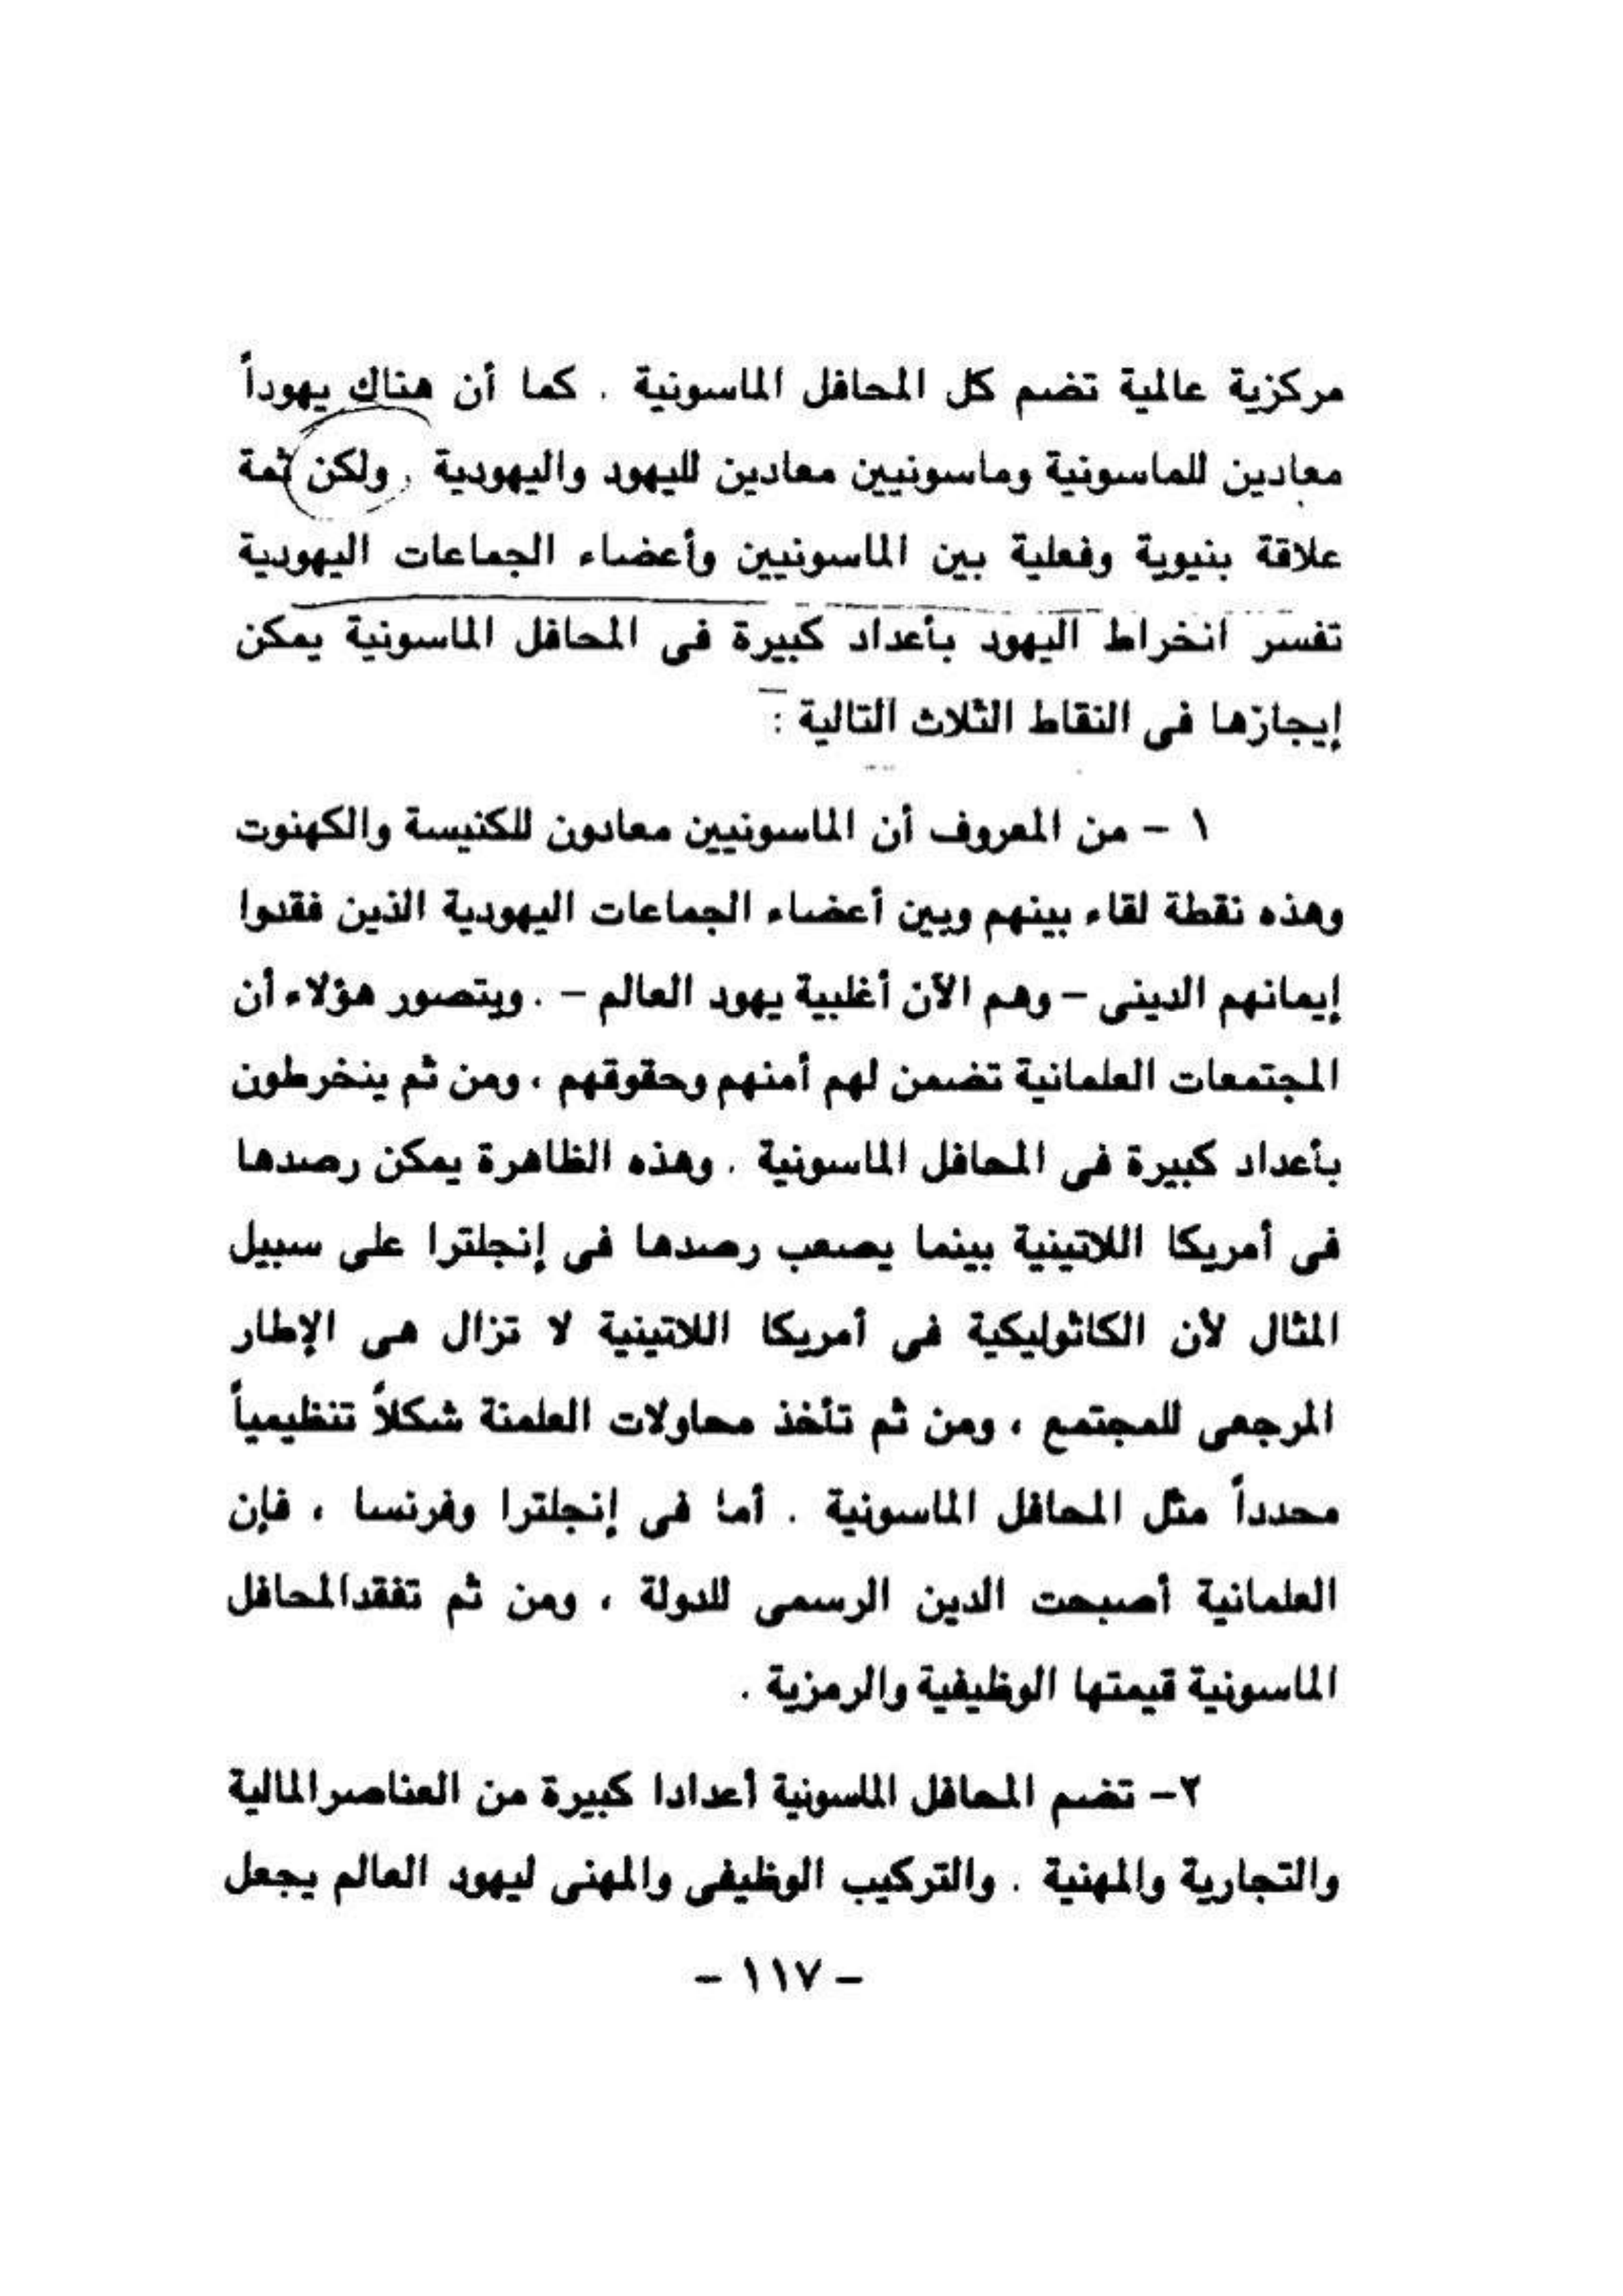 مركزية عالمية تضم كل المحافل الماسونية . كما أن هناك يهوداً
معادين للماسونية وماسونيين معادين لليهود واليهودية . ولكن ثمة
علاقة بنيوية وفعلية بين الماسونيين وأعضاء الجماعات اليهودية
تفسر انخراط اليهود بأعداد كبيرة فى المحافل الماسونية يمكن
إيجازها فى النقاط الثلاث التالية :
١ – من المعروف أن الماسونيين معادون للكنيسة والكهنوت
وهذه نقطة لقاء بينهم وبين أعضاء الجماعات اليهودية الذين فقدوا
إيمانهم الدينى – وهم الآن أغلبية يهود العالم – . ويتصور هؤلاء أن
المجتمعات العلمانية تضمن لهم أمنهم وحقوقهم ، ومن ثم ينخرطون
بأعداد كبيرة فى المحافل الماسونية . وهذه الظاهرة يمكن رصدها
فى أمريكا اللاتينية بينما يصعب رصدها فى إنجلترا على سبيل
المثال لأن الكاثوليكية فى أمريكا اللاتينية لا تزال هى الإطار
المرجعى للمجتمع ، ومن ثم تأخذ محاولات العلمنة شكلاً تنظيمياً
محدداً مثل المحافل الماسونية . أما فى إنجلترا وفرنسا ، فإن
العلمانية أصبحت الدين الرسمى للدولة ، ومن ثم تفقدالمحافل
الماسونية قيمتها الوظيفية والرمزية .
٢– تضم المحافل الماسونية أعدادا كبيرة من العناصرالمالية
والتجارية والمهنية . والتركيب الوظيفى والمهنى ليهود العالم يجعل
– ١١٧ –